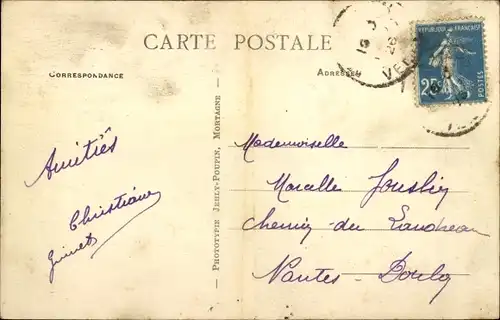 CARTE POSTALE
CORRESPONDANCE
ADRESSE
REPUBLIQUE FRANÇAISE
25
POSTES
Amitiés
Christiane
PHOTOTYPIE JEHLY-POUPIN, MORTAGNE
Mademoiselle
Marcelle
Chemin du Landreau
Nantes - Doulon